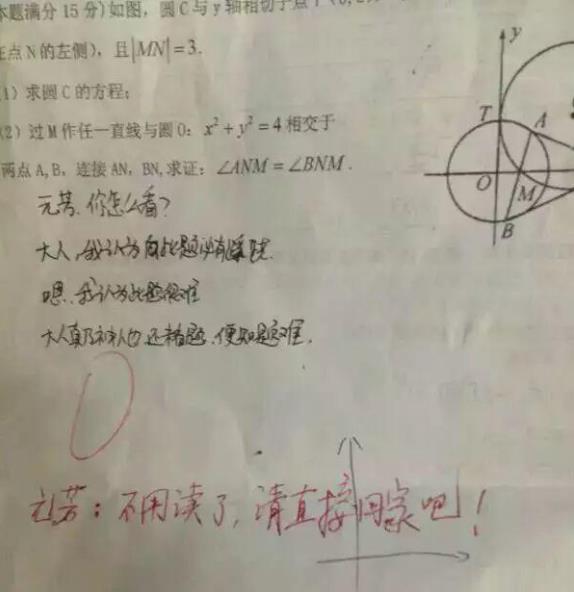 本题满分 15 分)如图，圆 C 与 y 轴相切于点 T
在点 N 的左侧)，且|MN|=3.
(1) 求圆 C 的方程；
(2) 过 M 作任一直线与圆 O：x²+y²=4 相交于
两点 A, B，连接 AN，BN, 求证：∠ANM=∠BNM.
y
T
A
O
M
B
元芳、你怎么看?
大人，我认为此题必有蹊跷.
嗯、我认为此题很难
大人真乃神人也、还看题、便知题难.
0
元芳：不用读了，请直接回家吧！